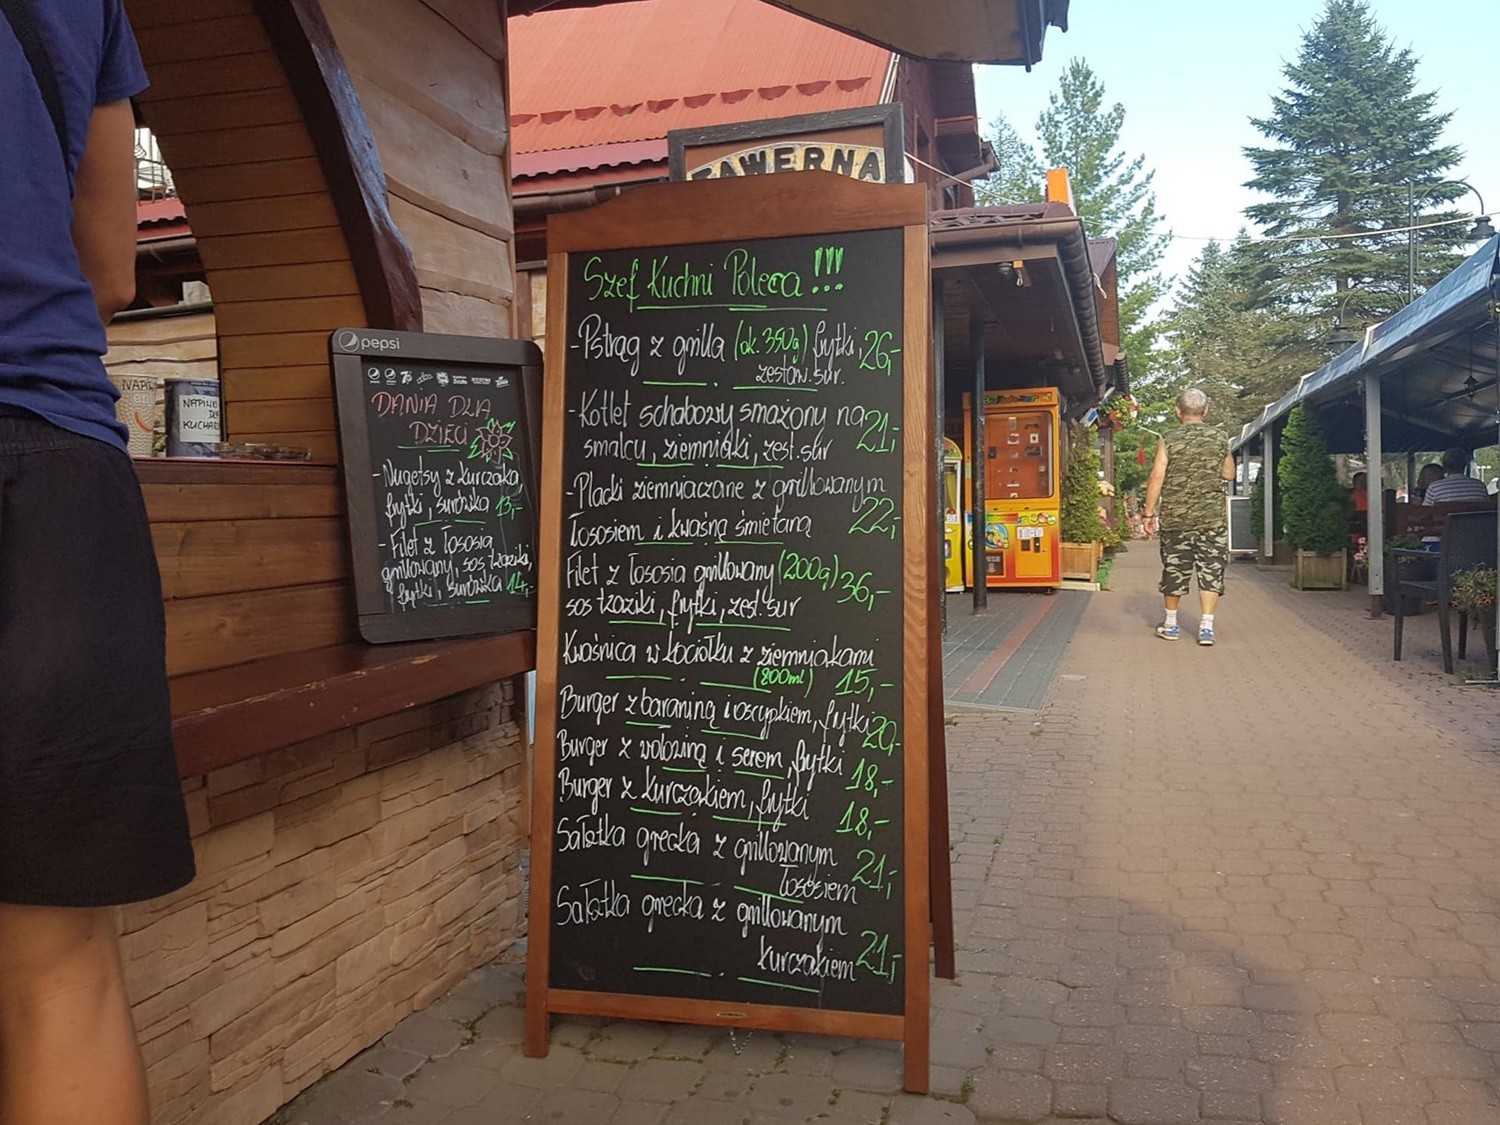 TAWERNA
Szef Kuchni Poleca !!!
-Pstrąg z grilla (ok. 350g) frytki, 26,-
zestaw. sur.
-Kotlet schabowy smażony na 21,-
smalcu, ziemniaki, zest. sur
-Placki ziemniaczane z grillowanym
łososiem i kwaśną śmietaną 22,-
Filet z łososia grillowany (200g) 36,-
sos tzaziki, frytki, zest. sur
Kwaśnica w kociołku z ziemniakami
(800ml) 15,-
Burger z baraniną i oscypkiem, frytki 20,-
Burger z wołowiną i serem, frytki 18,-
Burger z kurczakiem, frytki 18,-
Sałatka grecka z grillowanym
łososiem 21,-
Sałatka grecka z grillowanym
kurczakiem 21,-
pepsi
DANIA DLA
DZIECI
-Nugetsy z kurczaka,
frytki, surówka 13,-
-Filet z łososia
grillowany, sos tzaziki,
frytki, surówka 14,-
NAPIW
NAPIWE
DLA
KUCHARZ